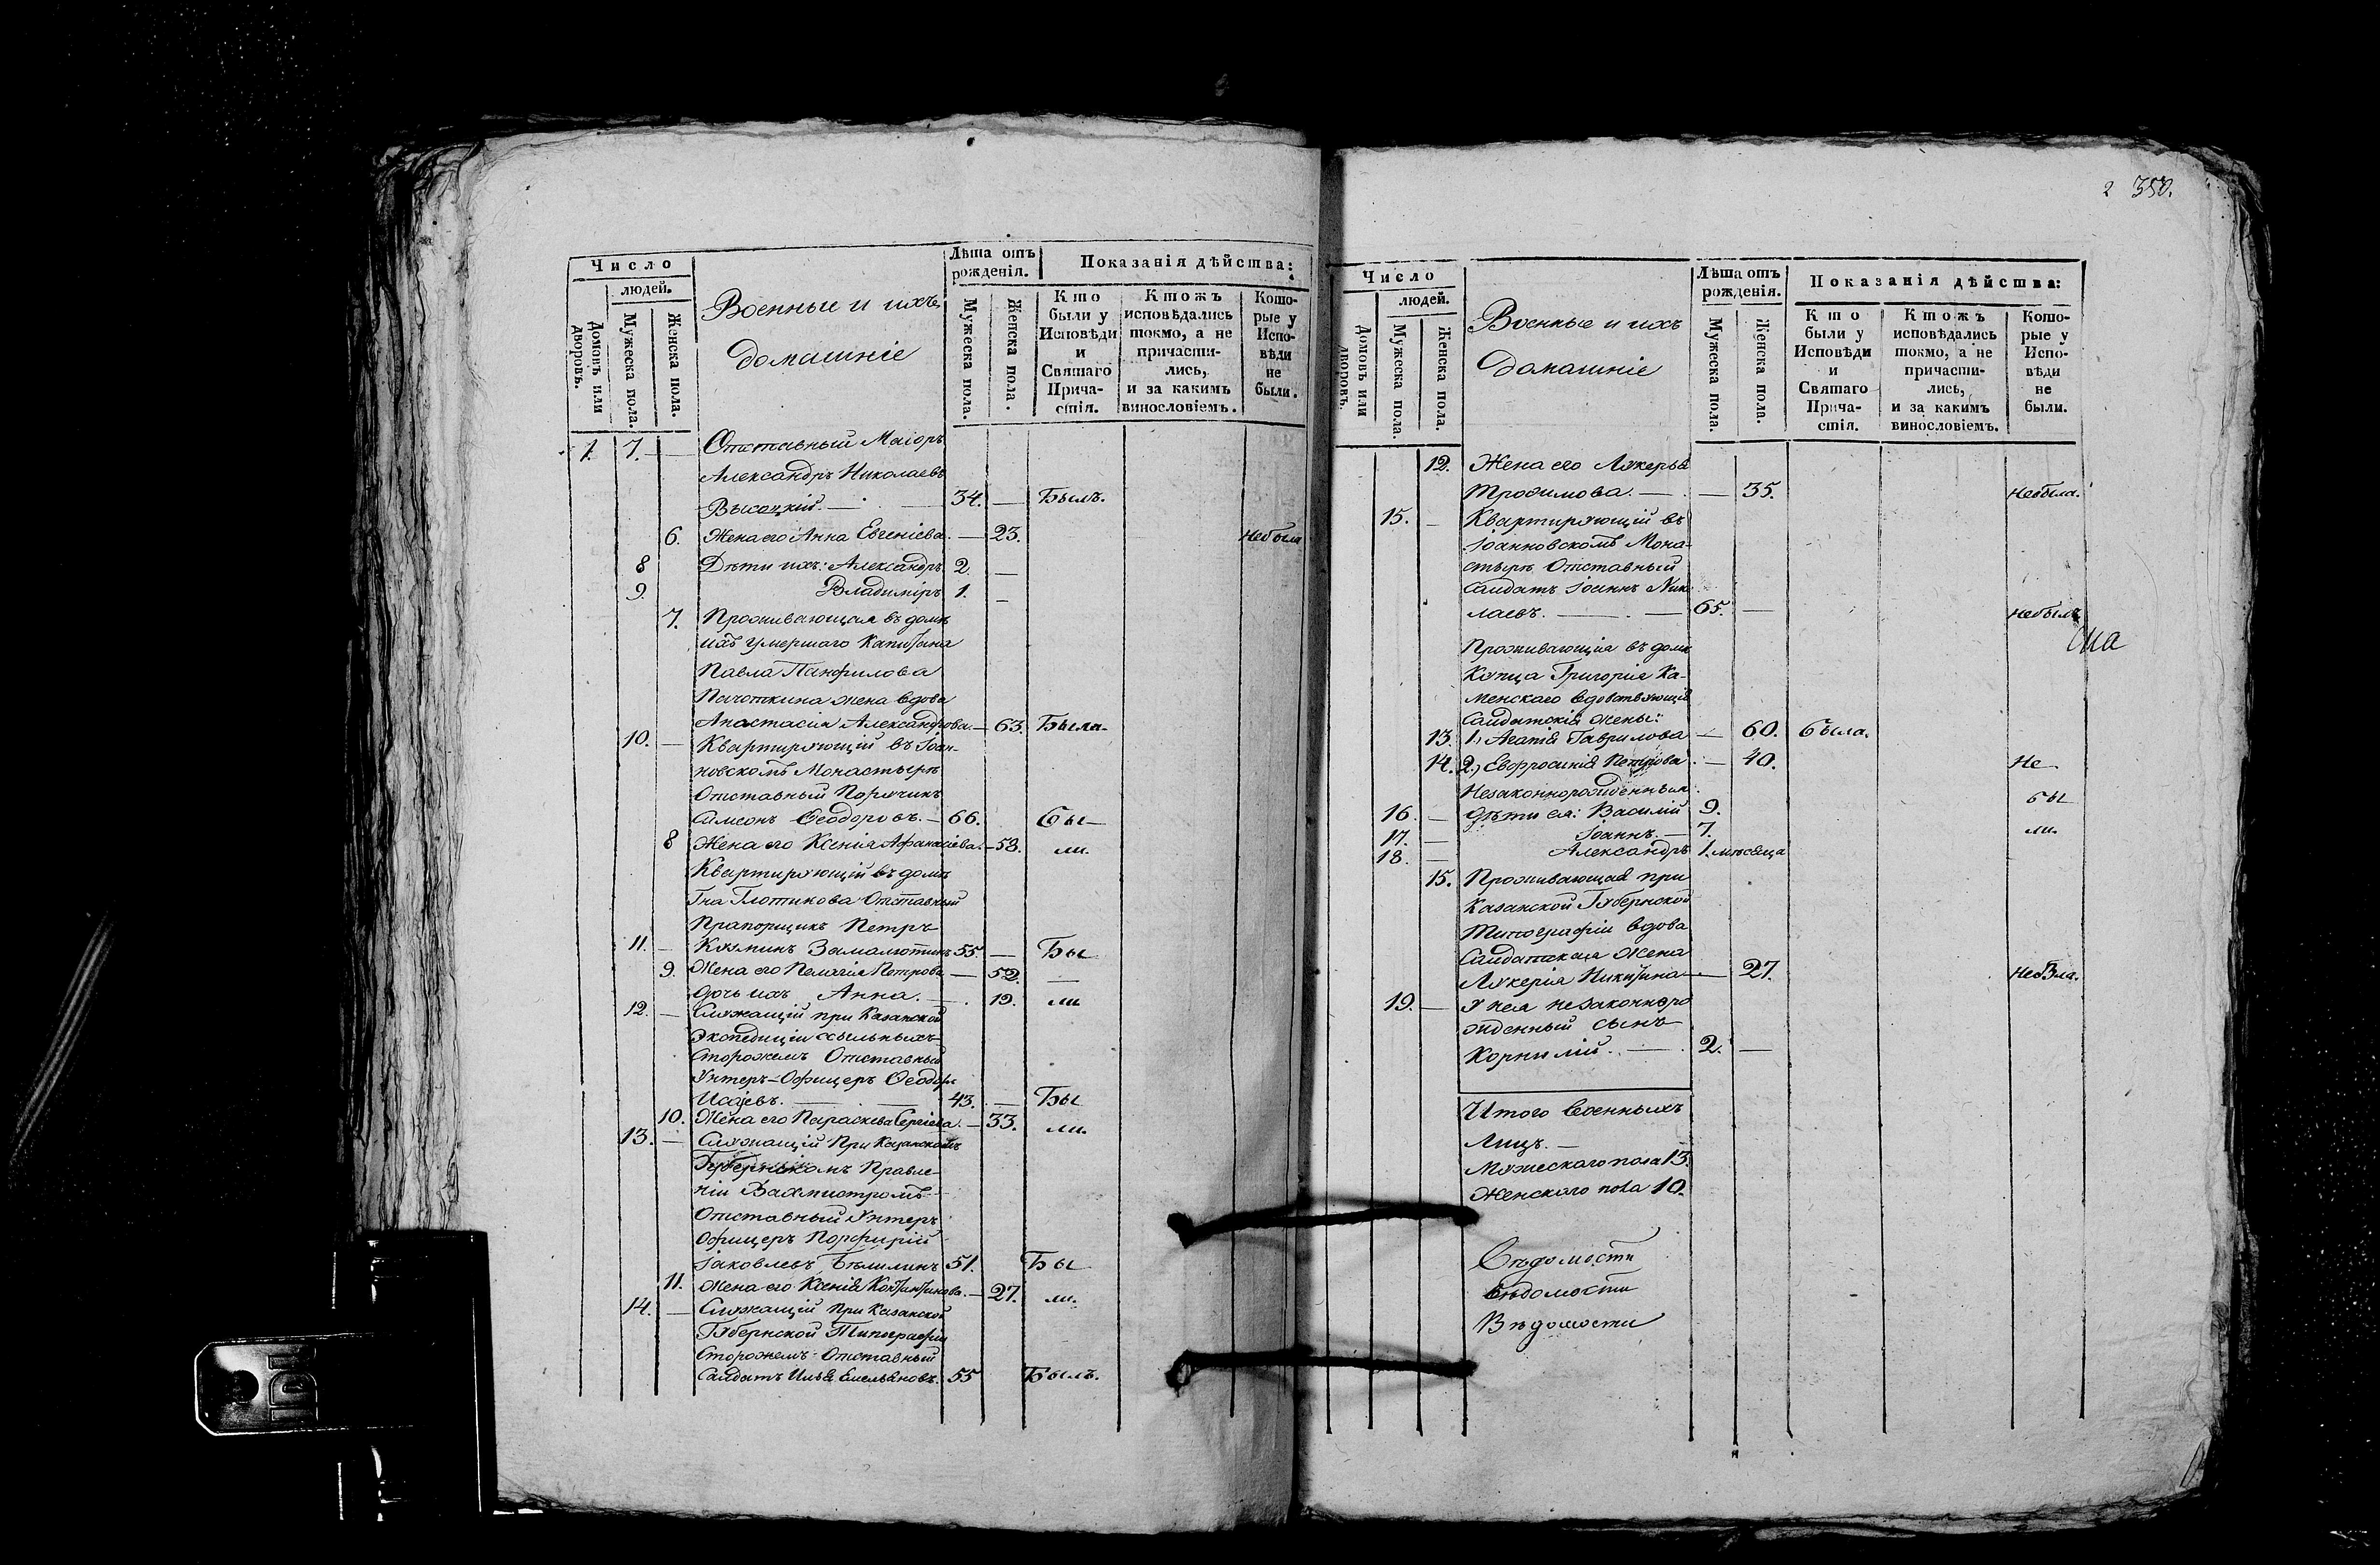 Число
людей.
Домовъ или дворовъ.
Мужеска пола.
Женска пола.
Военные и ихъ
домашніе
Лѣта отъ рожденія.
Мужеска пола.
Женска пола.
Показанія дѣйства:
Кто были у Исповѣди и Святаго Прича-стія.
Ктожъ исповѣдались токмо, а не причасти-лись, и за какимъ винословіемъ.
Кото-рые у Испо-вѣди не были.
1. 7. — Отставный Маіоръ
Александръ Николаевъ
Высоцкій. — 34. — Былъ.
6. Жена его Анна Евгеніева. — 23. Небыла
8 Дѣти ихъ: Александръ 2. —
9. Владиміръ 1. —
7. Проживающая въ домѣ
ихъ умершаго Капитана
Павла Панфилова
жена вдова
Анастасія Александрова. — 63. Была.
10. — Квартирующій въ Іоан-
новскомъ Монастырѣ
Отставный Поручикъ
Симеонъ Ѳеодоровъ. — 66. Бы—
8 Жена его Ксенія Афанасіева. — 58. ли.
Квартирующій въ домѣ
Гна Плотникова Отставный
Прапорщикъ Петръ
11. — Кузминъ 55. — Бы
9. Жена его Пелагія Петрова — 52. —
дочь ихъ Анна. — 19. ли
12. — Служащій при Казанской
Экспедиціи ссыльныхъ
Сторожемъ Отставный
Унтеръ-Офицеръ Ѳеодоръ
Исаевъ. — 43. — Бы
10. Жена его Параскева Сергіева. — 33. ли.
13. — Служащій при Казанскомъ
Губернскомъ Правле-
ніи Вахмистромъ
Отставный Унтеръ
Офицеръ Порфирій
Іаковлевъ Бѣлилинъ 51. Бы
11. Жена его Ксенія — 27. ли.
14. — Служащій при Казанской
Губернской Типографіи
Сторожемъ Отставный
Салдатъ Илья Емельяновъ. 55 Былъ.
2 350.
Число
людей.
Домовъ или дворовъ.
Мужеска пола.
Женска пола.
Военные и ихъ
домашніе
Лѣта отъ рожденія.
Мужеска пола.
Женска пола.
Показанія дѣйства:
Кто были у Исповѣди и Святаго Прича-стія.
Ктожъ исповѣдались токмо, а не причасти-лись, и за какимъ винословіемъ.
Кото-рые у Испо-вѣди не были.
12. Жена его Лукерья
Трофимова. — — 35. Небыла.
15. — Квартирующій въ
Іоанновскомъ Мона-
стырѣ Отставный
Салдатъ Іоаннъ Нико
лаевъ. — 65. — Небылъ
Проживающія въ домѣ
Купца Григорія Ка-
менскаго вдовствующія
Салдатскія жены:
13. 1.) Агапія Гаврилова — 60. была.
14. 2.) Евфросинія Петрова — 40. Не
Незаконнорожденныя
16. — дѣти ея: Василій 9. бы
17. — Іоаннъ. — 7. ли.
18. — Александръ 1. мѣсяца
15. Проживающая при
Казанской Губернской
Типографіи вдова
Салдатская жена
Лукерія Никитина — 27. Небыла.
19. — У нея незаконноро
жденный сынъ
Корнилій. — 2. —
Итого Военныхъ
Лицъ. —
Мужескаго пола 13.
Женскаго пола 10.
Вѣдомости
Вѣдомости
Вѣдомости